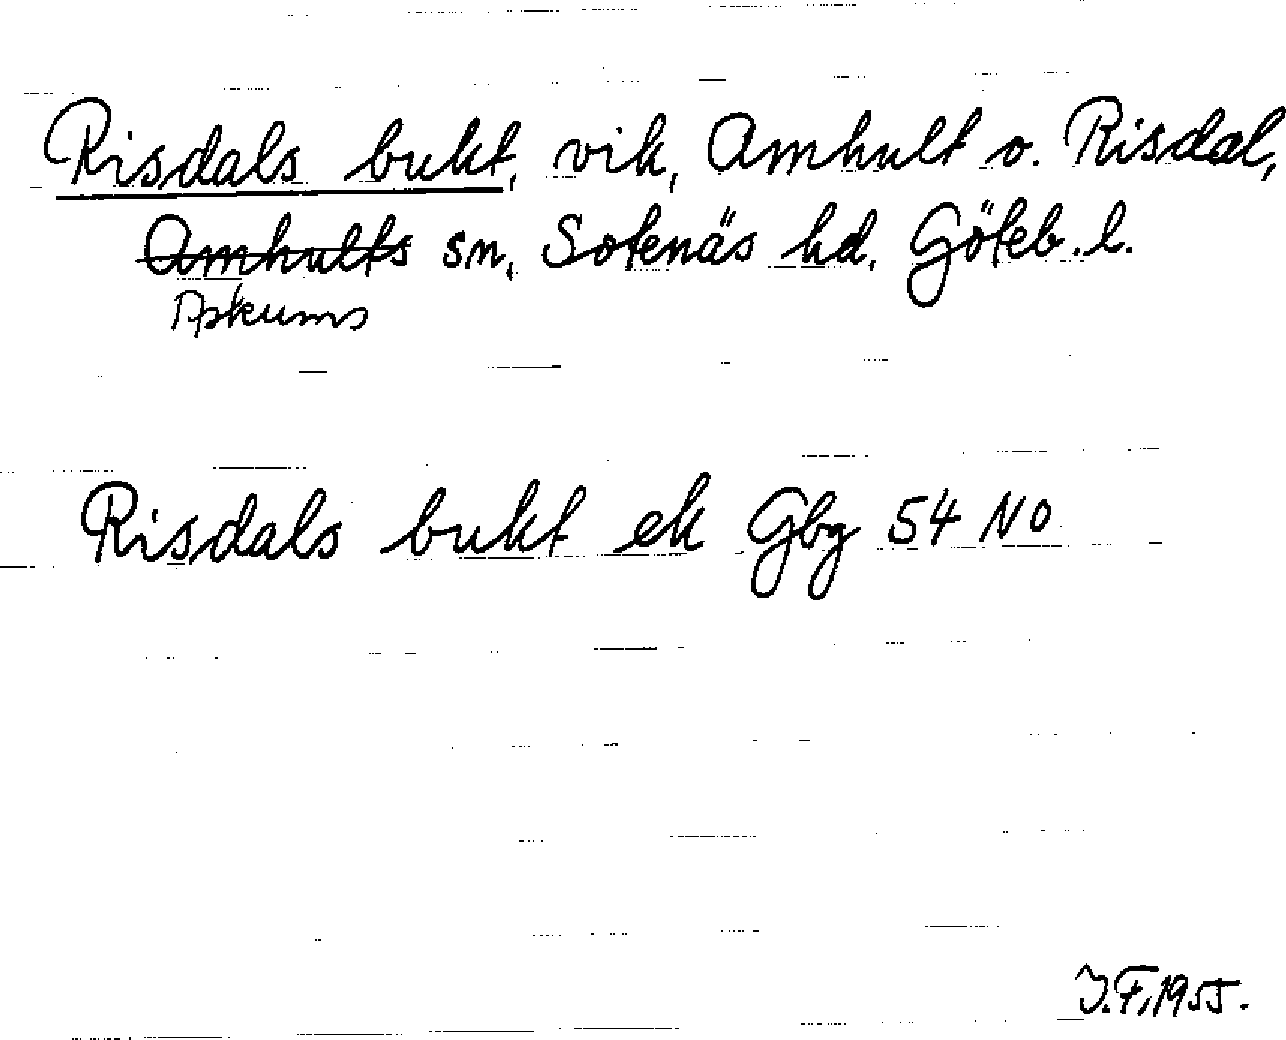 Risdals bukt, vik, Amhult o. Risdal,
Amhults sn, Sotenäs hd, Göteb. l.
Askums
Risdals bukt ek Gbg 54 NO
J.F. 1955.